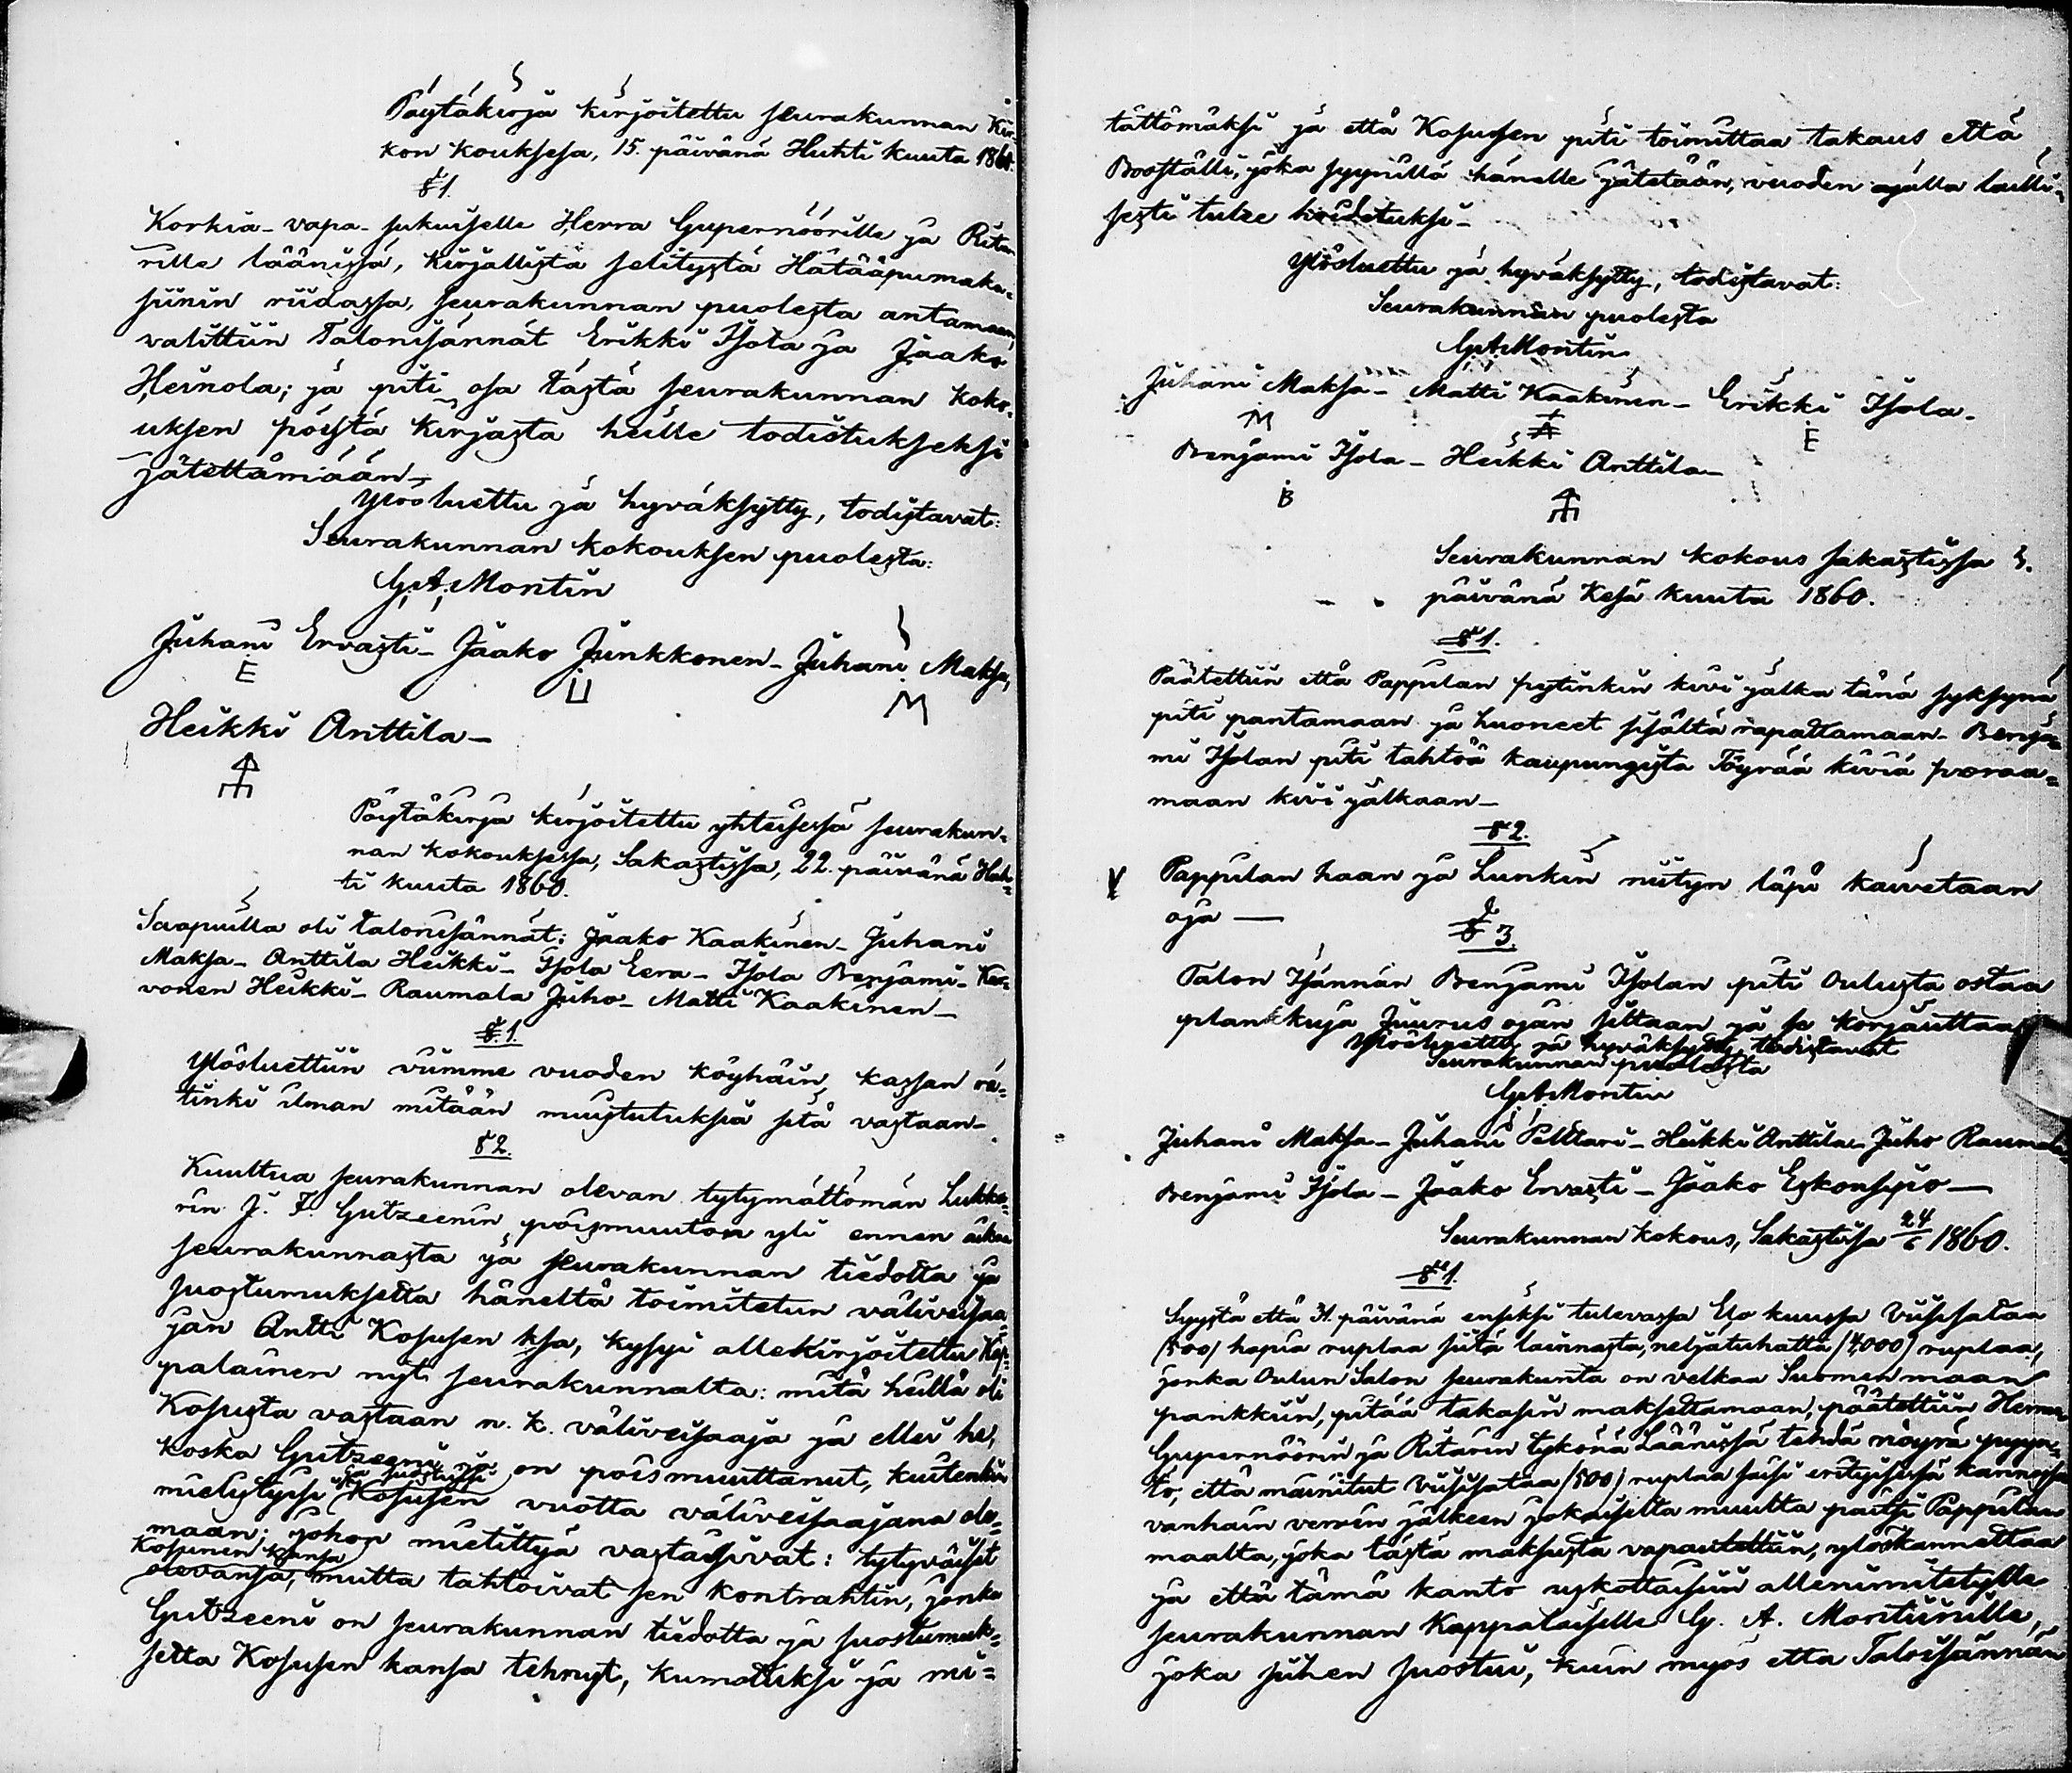 Pöytäkirja kirjoitettu seurakunnan Kir-
kon kouksesa, 15. päivänä Huhti kuuta 1860.
§ 1.
Korkia-vapa-sukuiselle Herra Gupernöörille ja Rita-
rille läänissä, kirjallista selitystä Hätääpumaka-
siinin riidassa, seurakunnan puolesta antamaan,
valittiin Talonisännät Erikki Isola ja Jaako
Heinola; ja piti osa tästä seurakunnan koko-
uksen pöystä kirjasta heille todistukseksi
jätettämään.
Ylösluettu ja hyväksytty, todistavat:
Seurakunnan kokouksen puolesta:
G. A. Montin
Juhani Ervasti - Jaako Junkkonen - Juhani Maksa,
E U M
Heikki Anttila -
Pöytäkirja kirjoitettu yhteisessä seurakun-
nan kokouksessa, Sakastissa, 22. päivänä Huh-
ti kuuta 1860.
Saapuilla oli talonisännät: Jaako Kaakinen - Juhani
Maksa - Anttila Heikki - Isola Eera - Isola Benjami - Ker-
vonen Heikki - Raumala Juho - Matti Kaakinen -
§. 1.
Ylösluettiin viimme vuoden köyhäin kassan rä-
tinki ilman mitään muistutuksia sitä vastaan -
§ 2.
Kuultua seurakunnan olevan tytymättömän Lukka-
rin J. F. Gutzeenin poismuuton yli ennen aikaa
seurakunnasta ja seurakunnan tiedotta ja
suostumuksetta häneltä toimitetun väliveisaa-
jan Antti Kosusen ksa, kysyi allekirjoitettu Kap-
palainen nyt seurakunnalta: mitä heillä oli
Kosusta vastaan n. k. väliveisaaja ja ellei he,
koska Gutzeeni jo on poismuuttanut, kuitenkin
ja suostuisi
mielistyisi Kosusen vuotta väliveisaajana ole-
maan; johon mietittyä vastaisivat: tytyväiset
Kosunen kansa
olevansa, mutta tahtoivat sen kontrahtin, jonka
Gutzeeni on seurakunnan tiedotta ja suostumuk-
setta Kosusen kansa tehnyt, kumotuksi ja mi-
tättömäksi ja että Kosusen piti toimittaa takaus että
Boställi, joka syynillä hänelle jätetään, vuoden ajalla lailli-
sesti tulee hoidetuksi -
Ylösluettu ja hyväksytty, todistavat:
Seurakunnan puolesta
G. A. Montin
Juhani Maksa - Matti Kaakinen - Erikki Isola -
M A E
Benjami Isola - Heikki Anttila -
B
Seurakunnan kokous sakastissa 3.
päivänä Kesä kuuta 1860.
§ 1.
Päätettiin että Pappilan pytinkin kivi jalka tänä syksynä
piti pantamaan ja huoneet sisältä rapattamaan - Benja-
mi Isolan piti tahtoa kaupungista Töyrää kiviä poraa-
maan kivi jalkaan -
§ 2.
Pappilan haan ja Lunkin niityn läpi kaivetaan
oja -
§ 3.
Talon Isännän Benjami Isolan piti Oulusta ostaa
plankkuja Juurus ojan siltaan ja se korjauttaa
Ylösluettu ja hyväksytty, todistavat
Seurakunnan puolesta
G. A. Montin
Juhani Maksa - Juhani Pelttari - Heikki Anttila - Juho Raumala
Benjami Isola - Jaako Ervasti - Jaako Eskonsipo -
Seurakunnan kokous, Sakastissa 24/6 1860.
§ 1.
Syystä että 31. päivänä ensiksi tulevassa Elo kuussa Viisisataa
(500) hopia ruplaa siitä lainnasta, neljätuhatta (4,000) ruplaa,
jonka Oulun Salon seurakunta on velkaa Suomenmaan
pankkiin, pitää takasin maksettamaan, päätettiin Herran
Gupernöörin ja Ritarin tykönä Läänissä tehdä nöyrä pyyn-
tö, että mainitut Viisisataa (500) ruplaa saisi erityisessä kannossa
vanhain veroin jälkeen jokaiselta muulta paitsi Pappilan
maalta, joka tästä maksusta vapautettiin, ylöskannettaa
ja että tämä kanto uskottaisiin allenimitetylle
seurakunnan Kappalaiselle G. A. Montiinille,
joka siihen suostui, kuin myös että Taloisännän